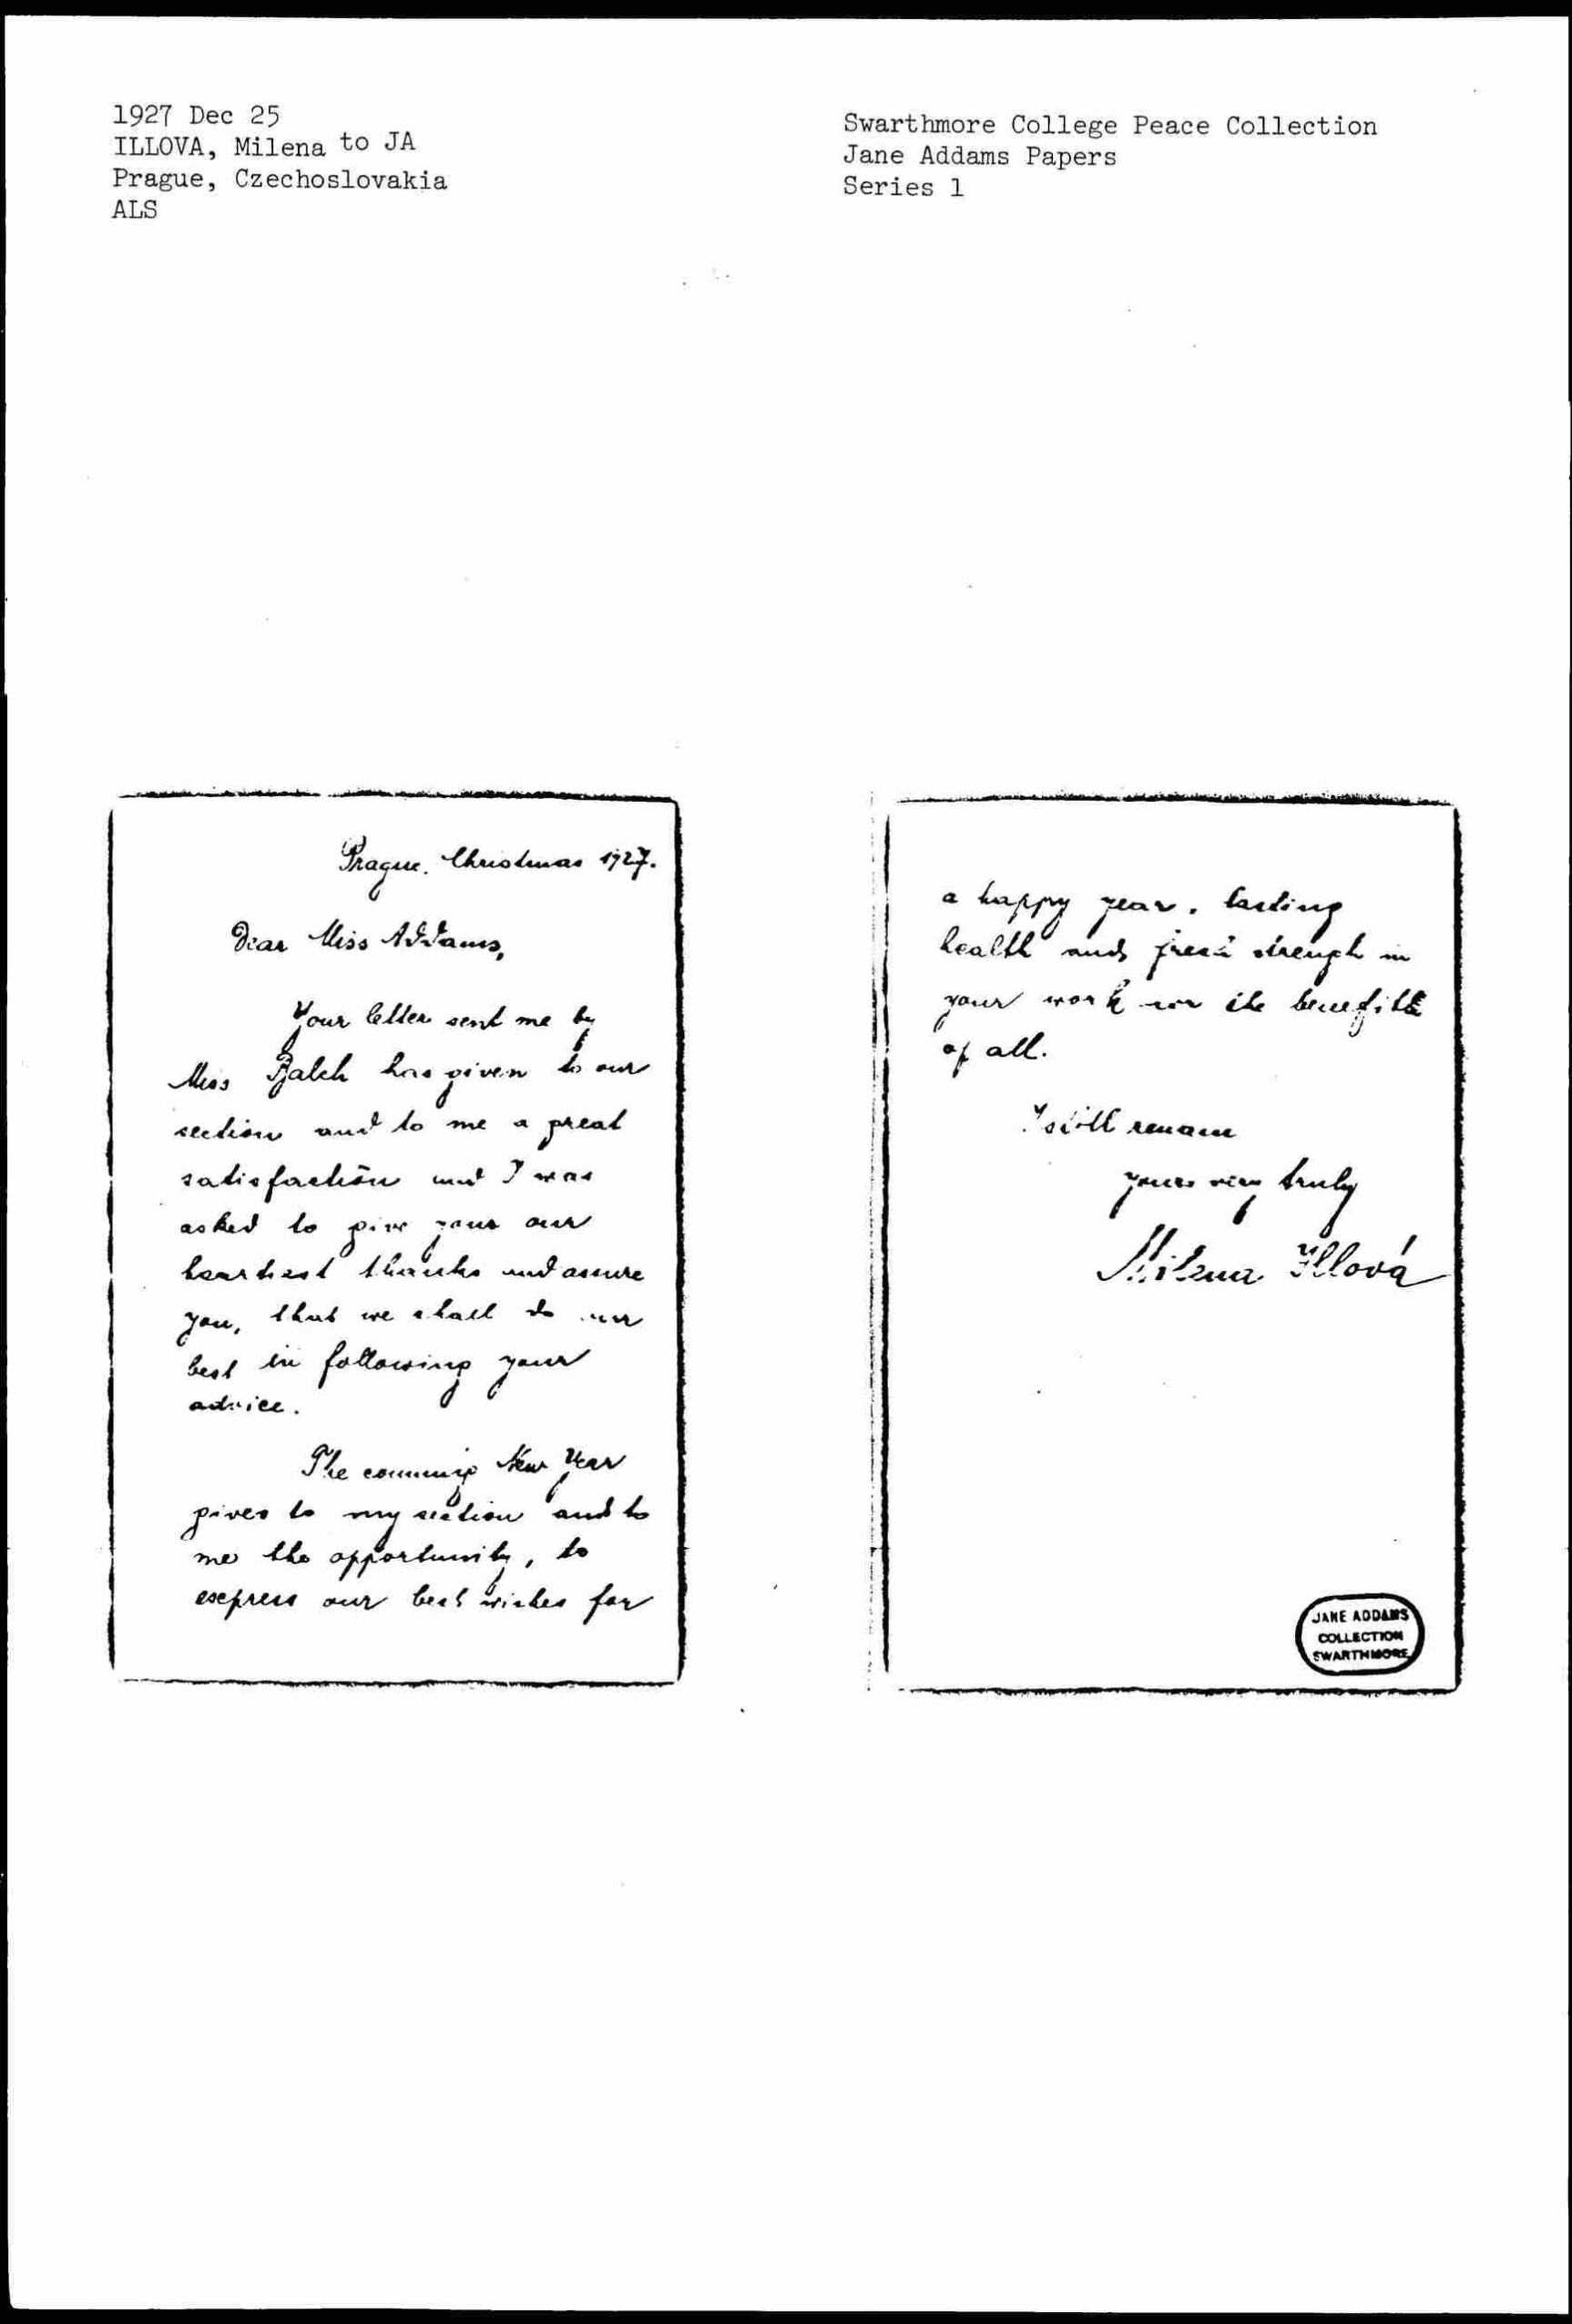 1927 Dec 25
ILLOVA, Milena to JA
Prague, Czechoslovakia
ALS
Swarthmore College Peace Collection
Jane Addams Papers
Series 1
Prague. Christmas 1927.
Dear Miss Addams,
Your letter sent me by
Miss Balch has given to our
section and to me a great
satisfaction and I was
asked to give your our
heartiest thanks and assure
you, that we shall do our
best in following your
advice.
The comming New Year
gives to my section and to
me the opportunity, to
express our best wishes for
a happy year, lasting
health and fresh strength in
your work for the benefit
of all.
I still remain
yours very truly
Milena Illová
JANE ADDAMS
COLLECTION
SWARTHMORE